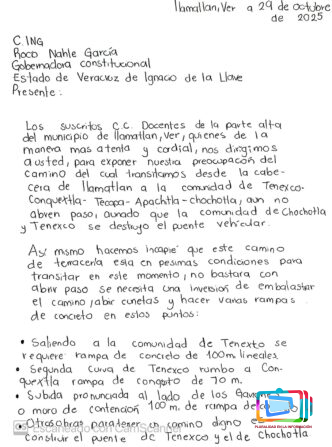 Ilamatlan, Ver a 29 de octubre
de 2025
C. ING
Rocío Nahle García
Gobernadora constitucional
Estado de Veracruz de Ignacio de la Llave
Presente:
Los suscritos C.C. Docentes de la parte alta
del municipio de Ilamatlan, Ver, quienes de la
manera mas atenta y cordial, nos dirigimos
a usted, para exponer nuestra preocupación del
camino del cual transitamos desde la cabe-
cera de Ilamatlan a la comunidad de Tenexco-
Conquextla- Tecapa- Apachtla- chochotla, aun no
abren paso, aunado que la comunidad de Chochotla
y Tenexco se destruyo el puente vehicular.
Asi mismo hacemos incapie que este camino
de terracería esta en pesimas condiciones para
transitar en este momento, no bastara con
abrir paso se necesita una inversión de embalastar
el camino, abrir cunetas y hacer varias rampas
de concreto en estos puntos:
• Saliendo a la comunidad de Tenexto se
requiere rampa de concreto de 100m lineales.
• Segunda Curva de Tenexco rumbo a Con-
quextla rampa de 70 m.
• Subida pronunciada al lado de los
o moro de contención 100 m. de rampa de
• Otras obras para tener un camino digno
construir el puente de Tenexco y el de Chochotla
Escaneado con CamScanner
PLURALIDAD EN LA INFORMACIÓN